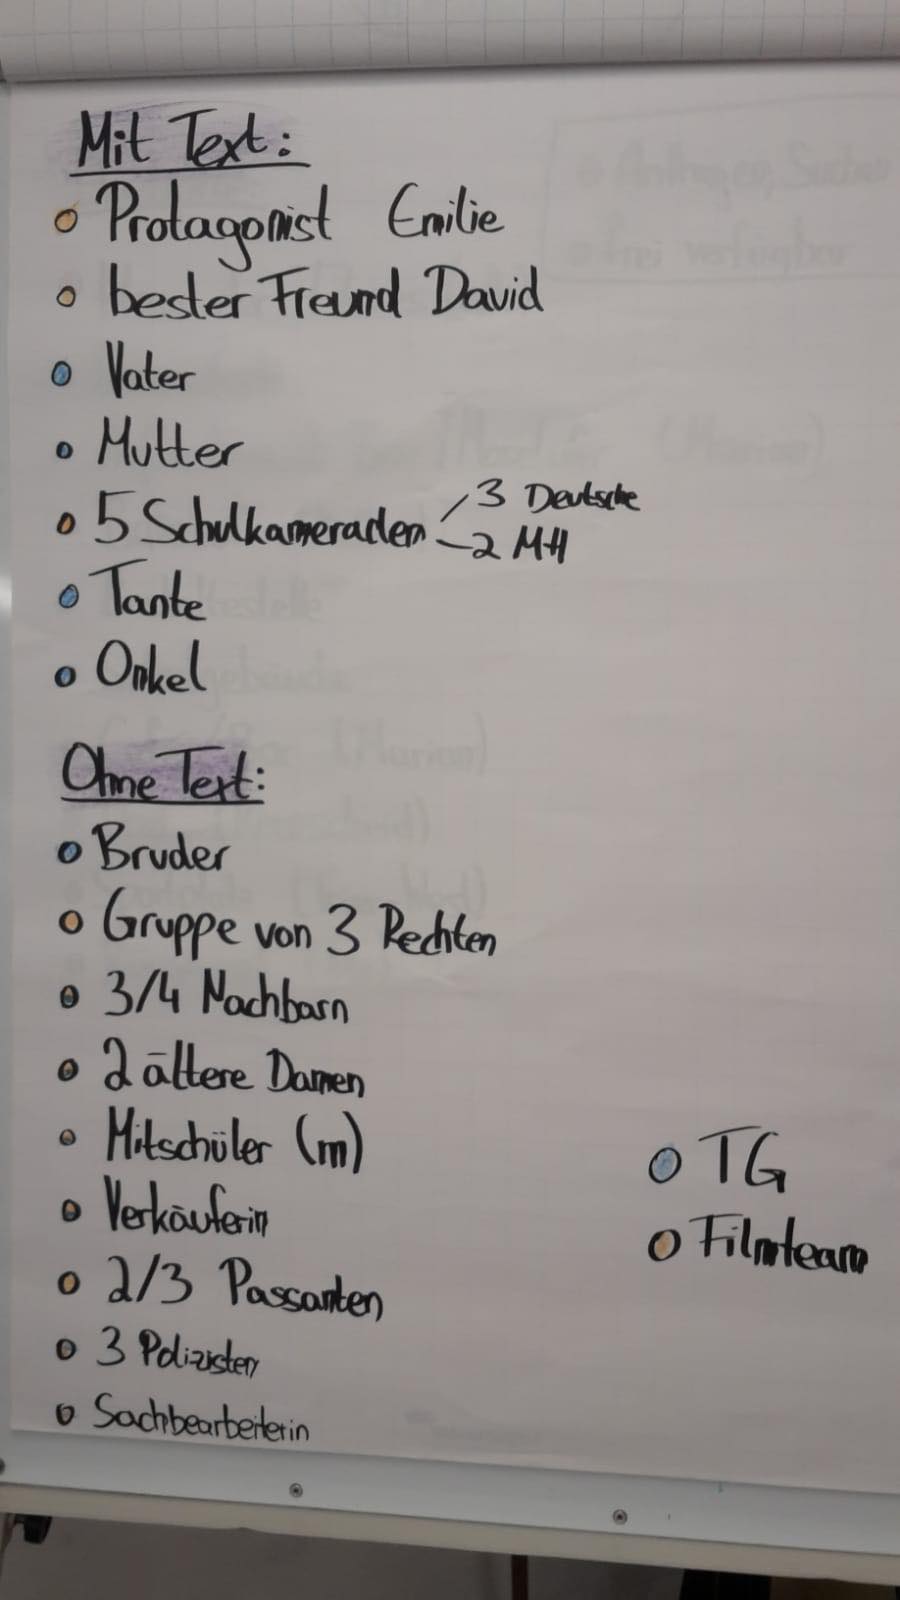 Mit Text:
Protagonist Emilie
bester Freund David
Vater
Mutter
5 Schulkameraden
3 Deutsche
2 MH
Tante
Onkel
Ohne Text:
Bruder
Gruppe von 3 Rechten
3/4 Nachbarn
2 ältere Damen
Mitschüler (m)
Verkäuferin
2/3 Passanten
3 Polizisten
Sachbearbeiterin
TG
Filmteam